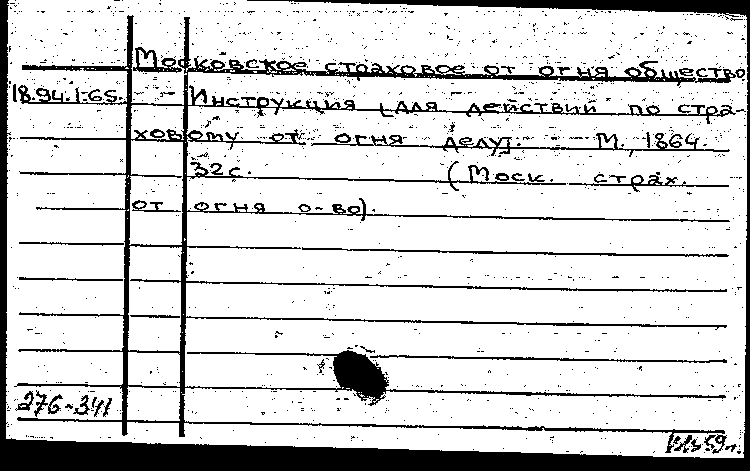 Московское страховое от огня общество
18.94.1.65. - Инструкция [для действий по стра-
ховому от огня делу]. - М., 1864.
32с. (Моск. страх.
от огня о-во).
276-341